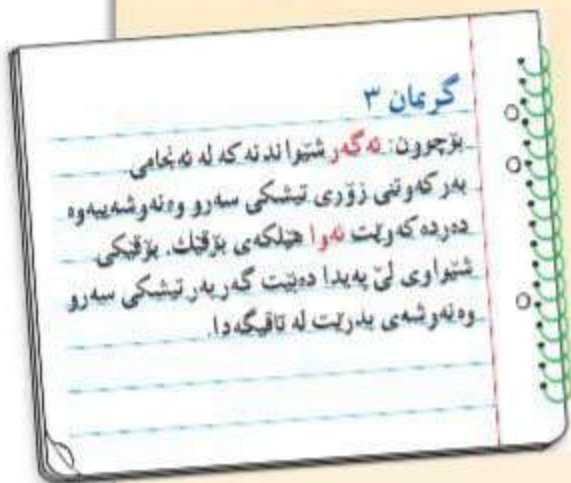 گریمان ٣
بۆچوون: ئەگەر شێواندنەکە لە ئەنجامی
بەرکەوتنی زۆری تیشکی سەرو وەنەوشەییەوە
دەردەکەوێت ئەوا هێلکەی بۆقێك. بۆقێکی
شێواوی لێ پەیدا دەبێت گەر بەر تیشکی سەرو
وەنەوشەی بدرێت لە تاقیگەدا.